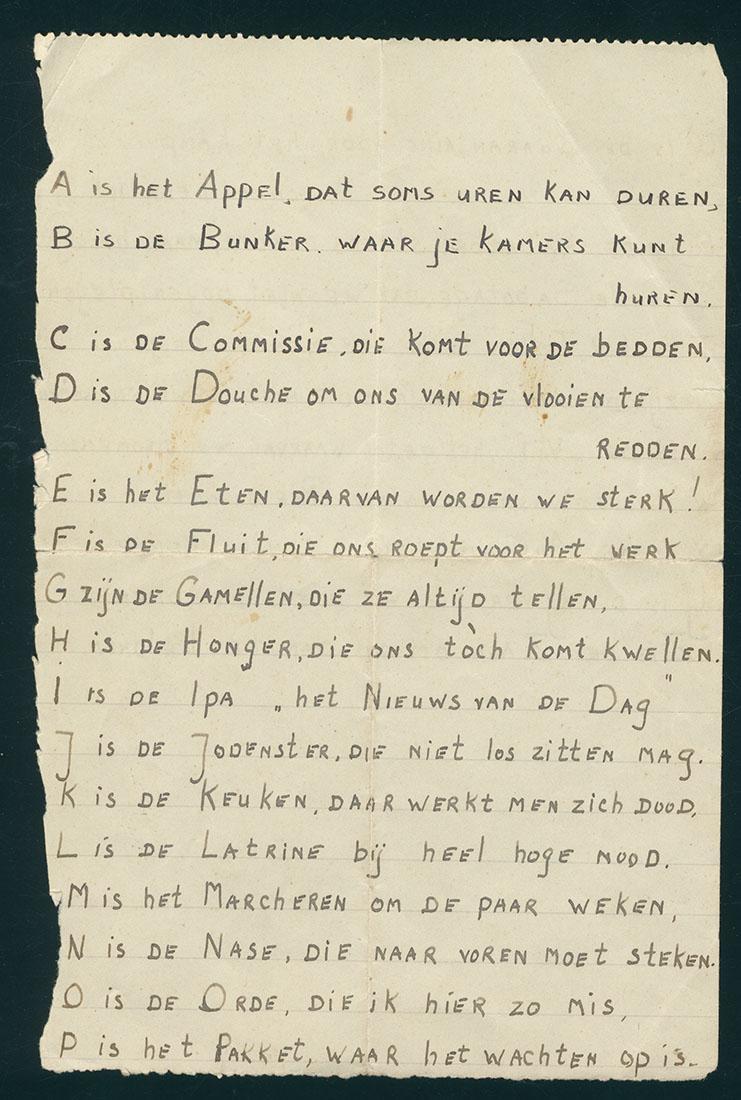 A is het Appel, dat soms uren kan duren,
B is de Bunker. waar je kamers kunt
huren.
C is de Commissie, die komt voor de bedden,
D is de Douche om ons van de vlooien te
redden.
E is het Eten, daarvan worden we sterk!
F is de Fluit, die ons roept voor het werk
G zijn de Gamellen, die ze altijd tellen,
H is de Honger, die ons tòch komt kwellen.
I is de Ipa „het Nieuws van de Dag"
J is de Jodenster, die niet los zitten mag.
K is de Keuken, daar werkt men zich dood,
L is de Latrine bij heel hoge nood.
M is het Marcheren om de paar weken,
N is de Nase, die naar voren moet steken.
O is de Orde, die ik hier zo mis,
P is het Pakket, waar het wachten op is.